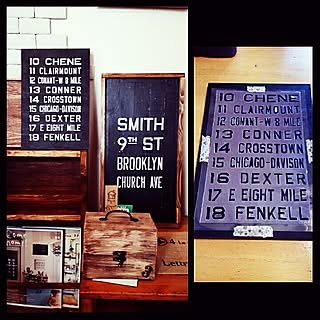 10 CHENE
11 CLAIRMOUNT
12 CONANT-W 8 MILE
13 CONNER
14 CROSSTOWN
15 CHICAGO-DAVISON
16 DEXTER
17 E EIGHT MILE
18 FENKELL
SMITH
9TH ST
BROOKLYN
CHURCH AVE
10 CHENE
11 CLAIRMOUNT
12 CONANT-W 8 MILE
13 CONNER
14 CROSSTOWN
15 CHICAGO-DAVISON
16 DEXTER
17 E EIGHT MILE
18 FENKELL